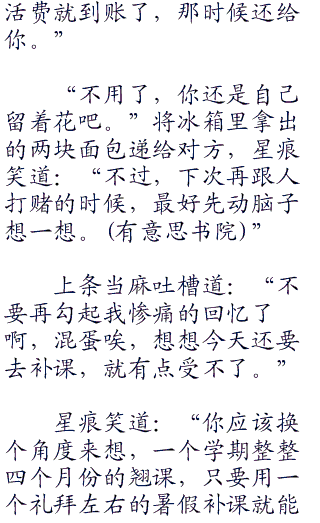 活费就到账了，那时候还给
你。”
“不用了，你还是自己
留着花吧。”将冰箱里拿出
的两块面包递给对方，星痕
笑道：“不过，下次再跟人
打赌的时候，最好先动脑子
想一想。(有意思书院)”
上条当麻吐槽道：“不
要再勾起我惨痛的回忆了
啊，混蛋唉，想想今天还要
去补课，就有点受不了。”
星痕笑道：“你应该换
个角度来想，一个学期整整
四个月份的翘课，只要用一
个礼拜左右的暑假补课就能